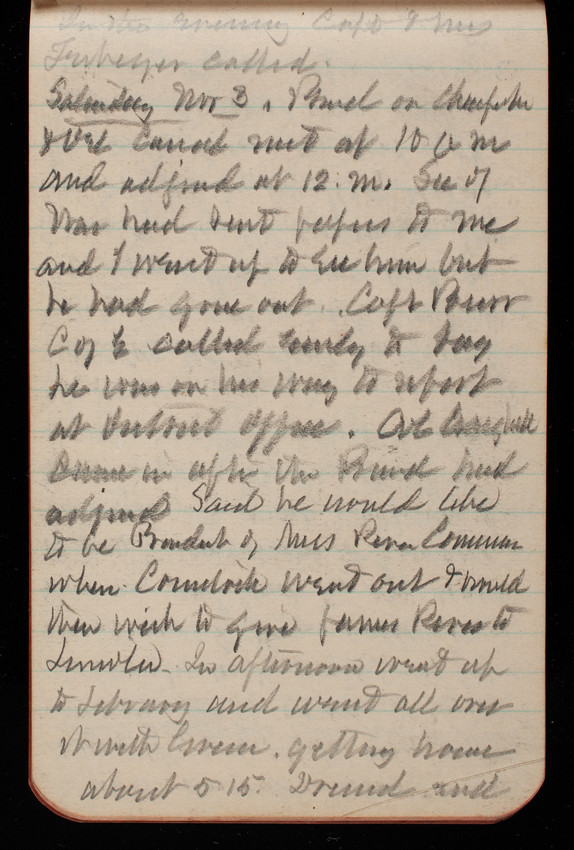 In the evening Capt & Mrs
called.
Saturday Nov 3. Board on Chesapeake
& Del Canal met at 10 a m
and adjrnd at 12. m. Sec of
War had sent papers to me
and I went up to see him but
he had gone out. Capt Burr
C of E called early to day
he was on his way to report
at District Office. Col Craighill
came in after the Board had
adjrnd Said he would like
to be President of Miss River Commn
when Comstock went out & would
then wish to give James River to
. In afternoon went up
to Library and went all over
it with Green. getting home
about 5 15. and